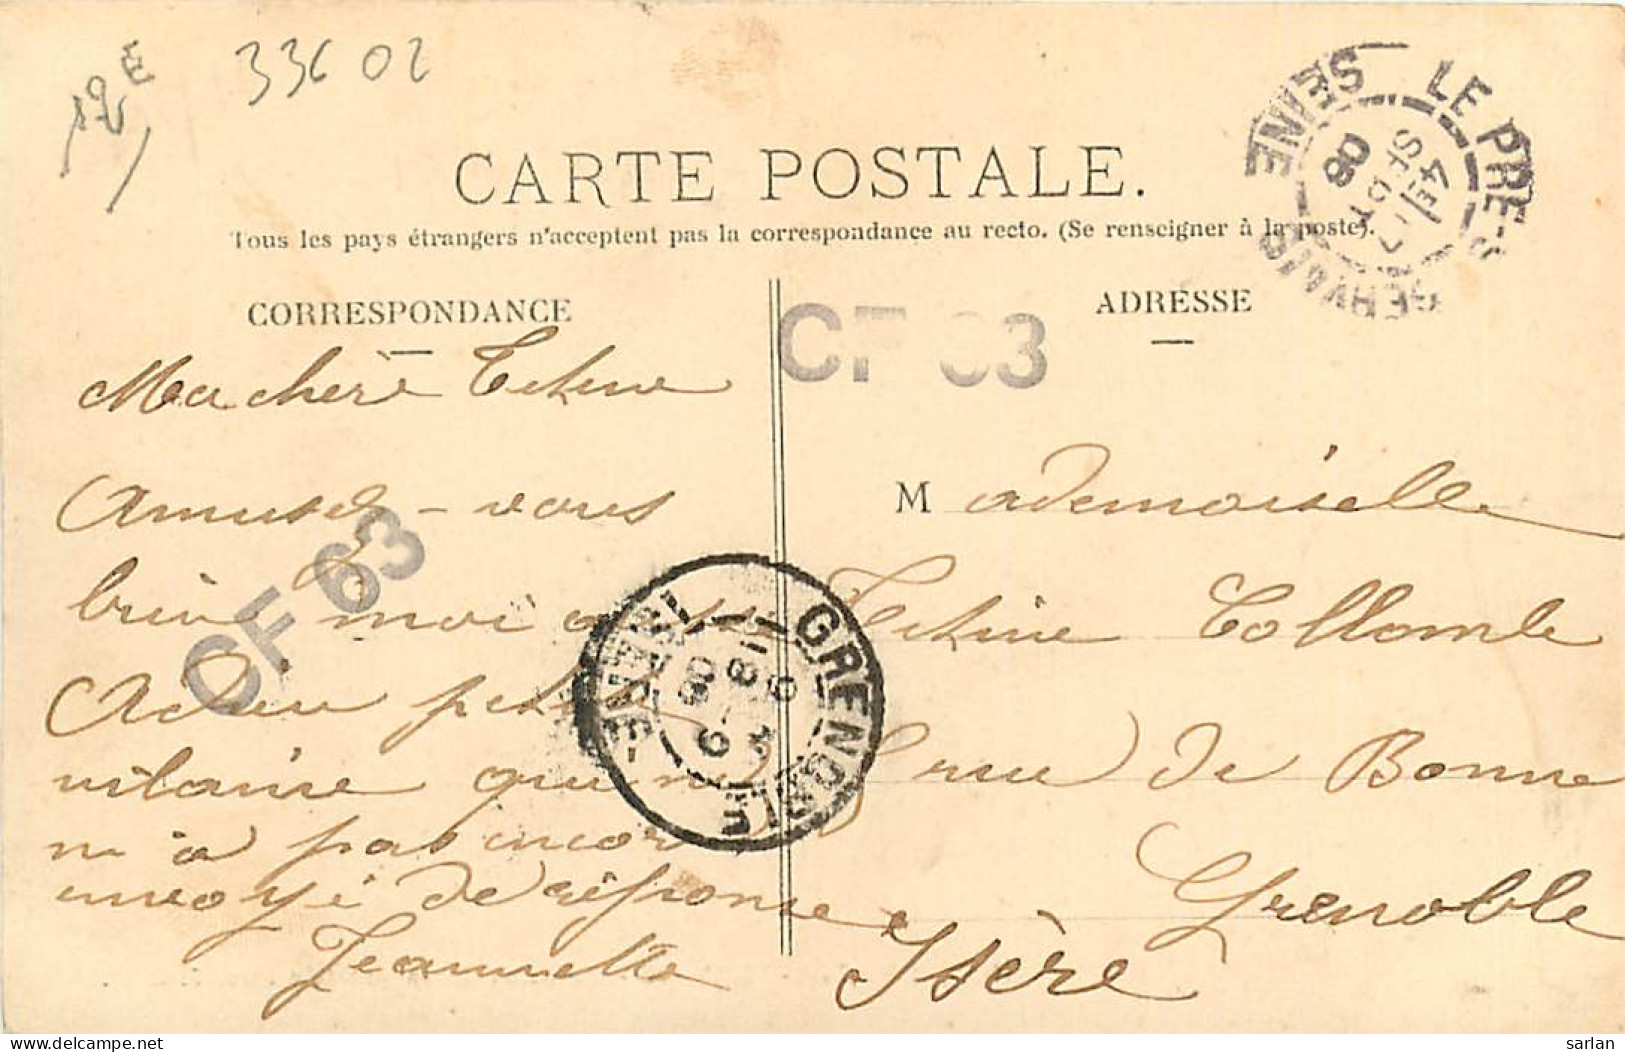 12E
336 02
CARTE POSTALE.
Tous les pays étrangers n'acceptent pas la correspondance au recto. (Se renseigner à la poste).
LE PRÉ-S GERVAIS SEINE
4E/17
SEPT
08
CORRESPONDANCE
ADRESSE
CF 63
Ma chère Titine
Amusez-vous
bien moi aussi
Adieu petite
vilaine qui ne
m'a pas encor
envoyé de réponse
Jeannette
CF 63
GRENOBLE
18
9
08
Mademoiselle
Titine Collomb
rue de Bonne
Grenoble
Isère
delcampe.net
sarlan